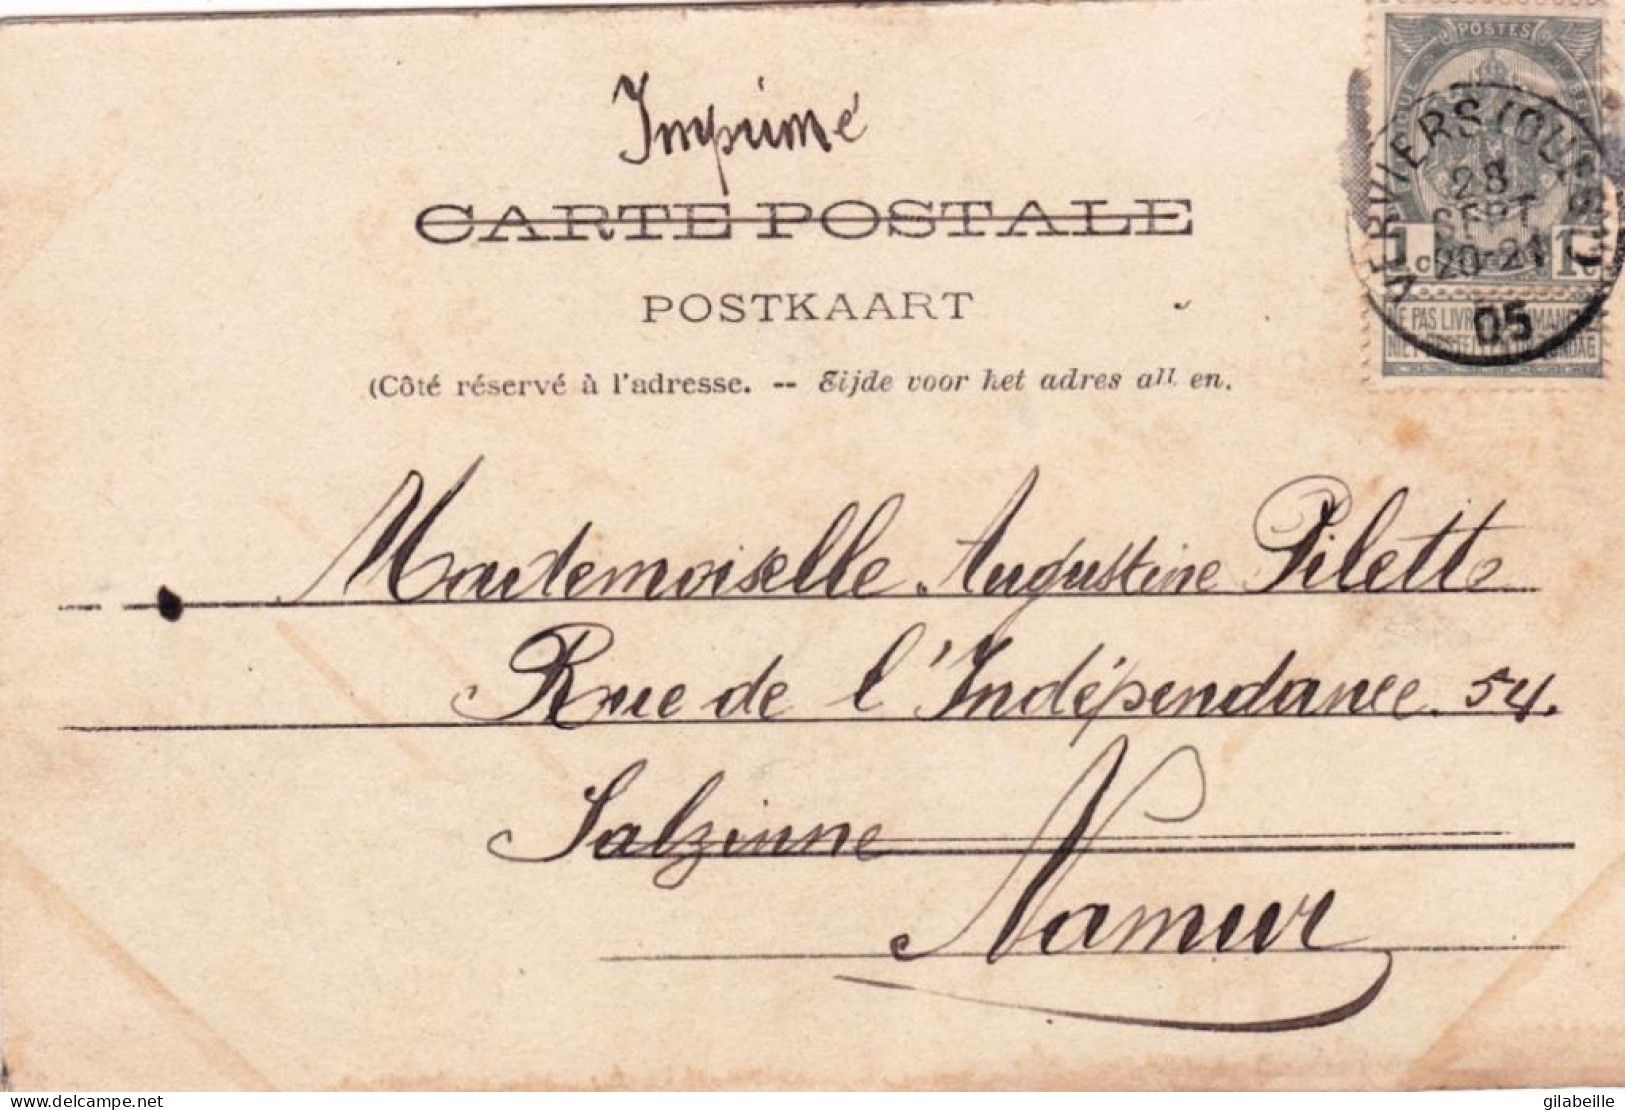 Imprimé
CARTE POSTALE
POSTKAART
(Côté réservé à l'adresse. -- Zijde voor het adres all en.
Mademoiselle Augustine Pilette
Rue de l'Indépendance. 54.
Salzinne
Namur
POSTES
VERVIERS (OUEST)
28
SEPT
20-21
05
1c 1c
NE PAS LIVRER LE DIMANCHE
NIET BESTELLEN OP ZONDAG
delcampe.net
gilabeille